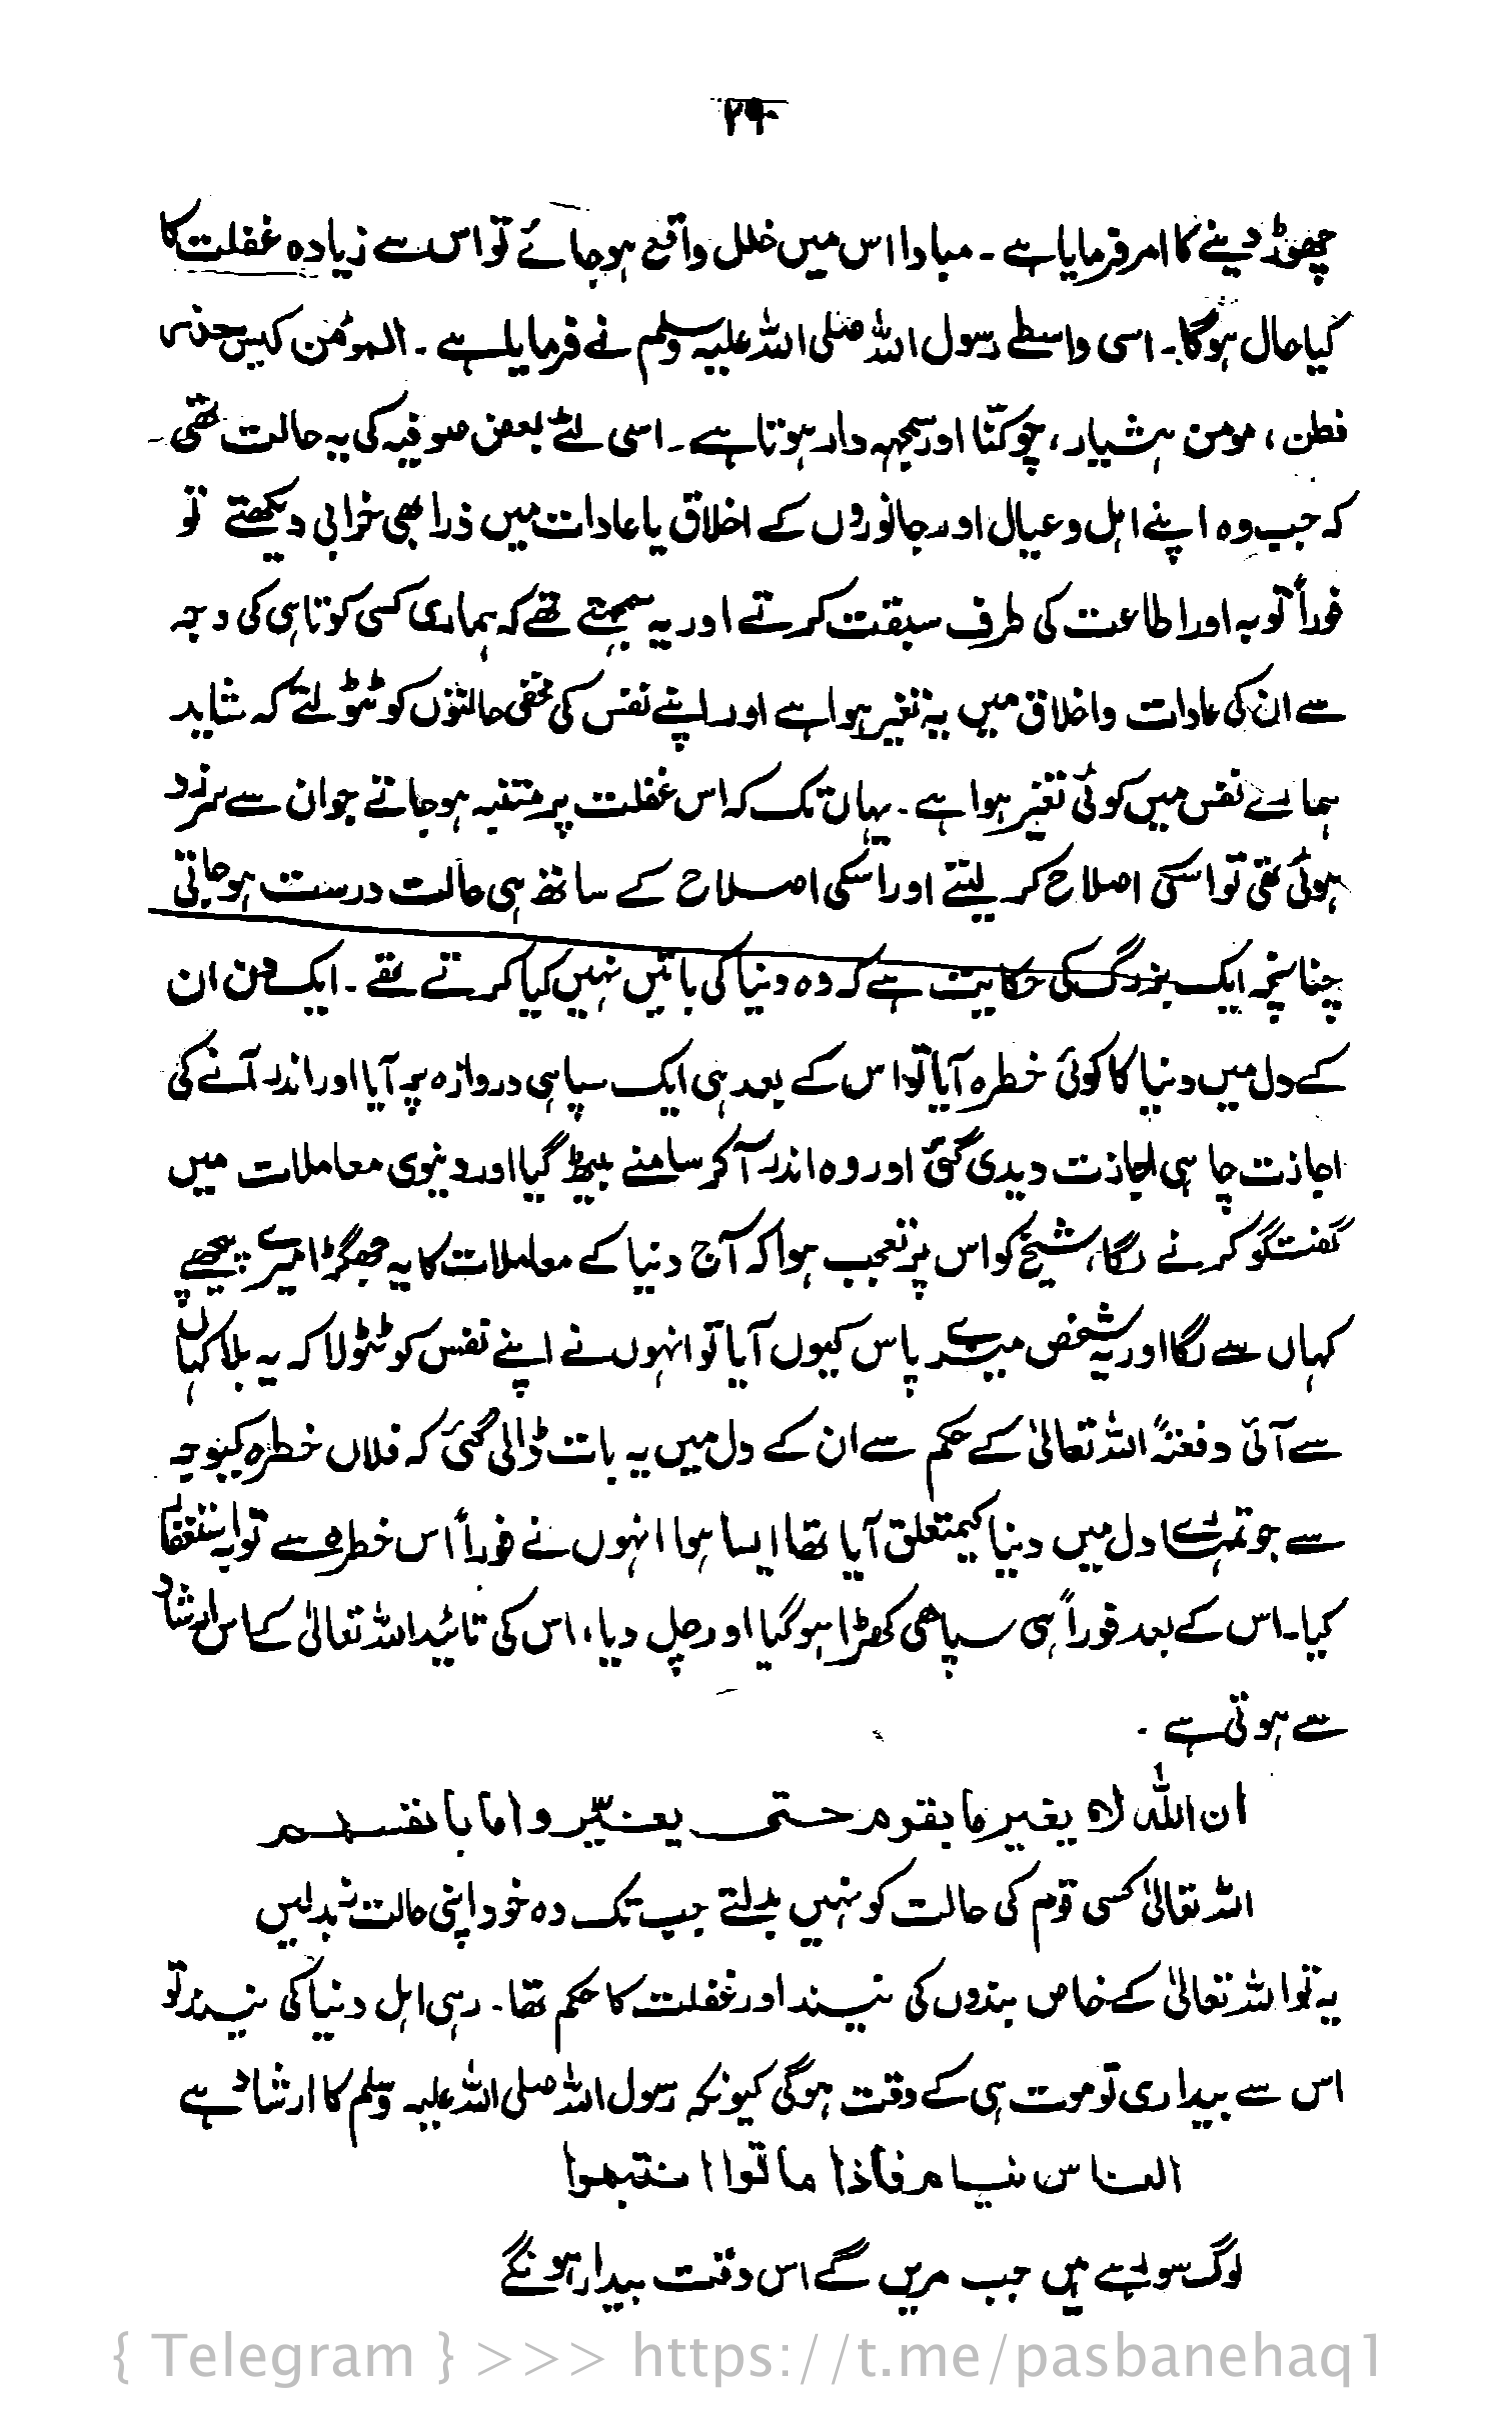 ۲۹۰
چھوڑ دینے کا امر فرمایا ہے ۔ مبادا اس میں خلل واقع ہو جائے تو اس سے زیادہ غفلت کا
کیا حال ہوگا۔ اسی واسطے رسول اللہ صلی اللہ علیہ وسلم نے فرمایا ہے ۔ المؤمن کیس حذر
فطن ، مومن ہشیار ، چوکنّا اور سمجھ دار ہوتا ہے ۔ اسی لئے بعض صوفیہ کی یہ حالت تھی
کہ جب وہ اپنے اہل و عیال اور جانوروں کے اخلاق یا عادات میں ذرا بھی خرابی دیکھتے تو
فوراً توبہ اور اطاعت کی طرف سبقت کرتے اور یہ سمجھتے تھے کہ ہماری کسی کوتاہی کی وجہ
سے ان کی عادات و اخلاق میں یہ تغیر ہوا ہے اور اپنے نفس کی مخفی حالتوں کو ٹٹولتے کہ شاید
ہمارے نفس میں کوئی تغیر ہوا ہے ۔ یہاں تک کہ اس غفلت پر متنبہ ہو جاتے جو ان سے سرزد
ہوئی تھی تو اسکی اصلاح کر لیتے اور اسکی اصلاح کے ساتھ ہی حالت درست ہو جاتی
چنانچہ ایک بزرگ کی حکایت ہے کہ وہ دنیا کی باتیں نہیں کیا کرتے تھے ۔ ایک دن ان
کے دل میں دنیا کا کوئی خطرہ آیا تو اس کے بعد ہی ایک سپاہی دروازہ پر آیا اور اندر آنے کی
اجازت چاہی اجازت دیدی گئی اور وہ اندر آ کر سامنے بیٹھ گیا اور دنیوی معاملات میں
گفتگو کرنے لگا، شیخ کو اس پر تعجب ہوا کہ آج دنیا کے معاملات کا یہ جھگڑا میرے پیچھے
کہاں سے لگا اور یہ شخص میرے پاس کیوں آیا تو انہوں نے اپنے نفس کو ٹٹولا کہ یہ بلا کہاں
سے آئی دفعتہً اللہ تعالیٰ کے حکم سے ان کے دل میں یہ بات ڈالی گئی کہ فلاں خطرہ کیوجہ
سے جو تمہارے دل میں دنیا کیمتعلق آیا تھا ایسا ہوا انہوں نے فوراً اس خطرہ سے توبہ استغفار
کیا۔ اس کے بعد فوراً ہی سپاھی کھڑا ہو گیا اور چل دیا، اس کی تائید اللہ تعالیٰ کے اس ارشاد
سے ہوتی ہے ۔
ان اللہ لا یغیر ما بقوم حتی یغیّروا ما بانفسہم
اللہ تعالیٰ کسی قوم کی حالت کو نہیں بدلتے جب تک وہ خود اپنی حالت نہ بدلیں
یہ تو اللہ تعالیٰ کے خاص بندوں کی نیند اور غفلت کا حکم تھا ۔ رہی اہل دنیا کی نیند تو
اس سے بیداری تو موت ہی کے وقت ہوگی کیونکہ رسول اللہ صلی اللہ علیہ وسلم کا ارشاد ہے
الناس نیام فاذا ماتوا انتبہوا
لوگ سو رہے ہیں جب مریں گے اس وقت بیدار ہونگے
{ Telegram } >>> https://t.me/pasbanehaq1